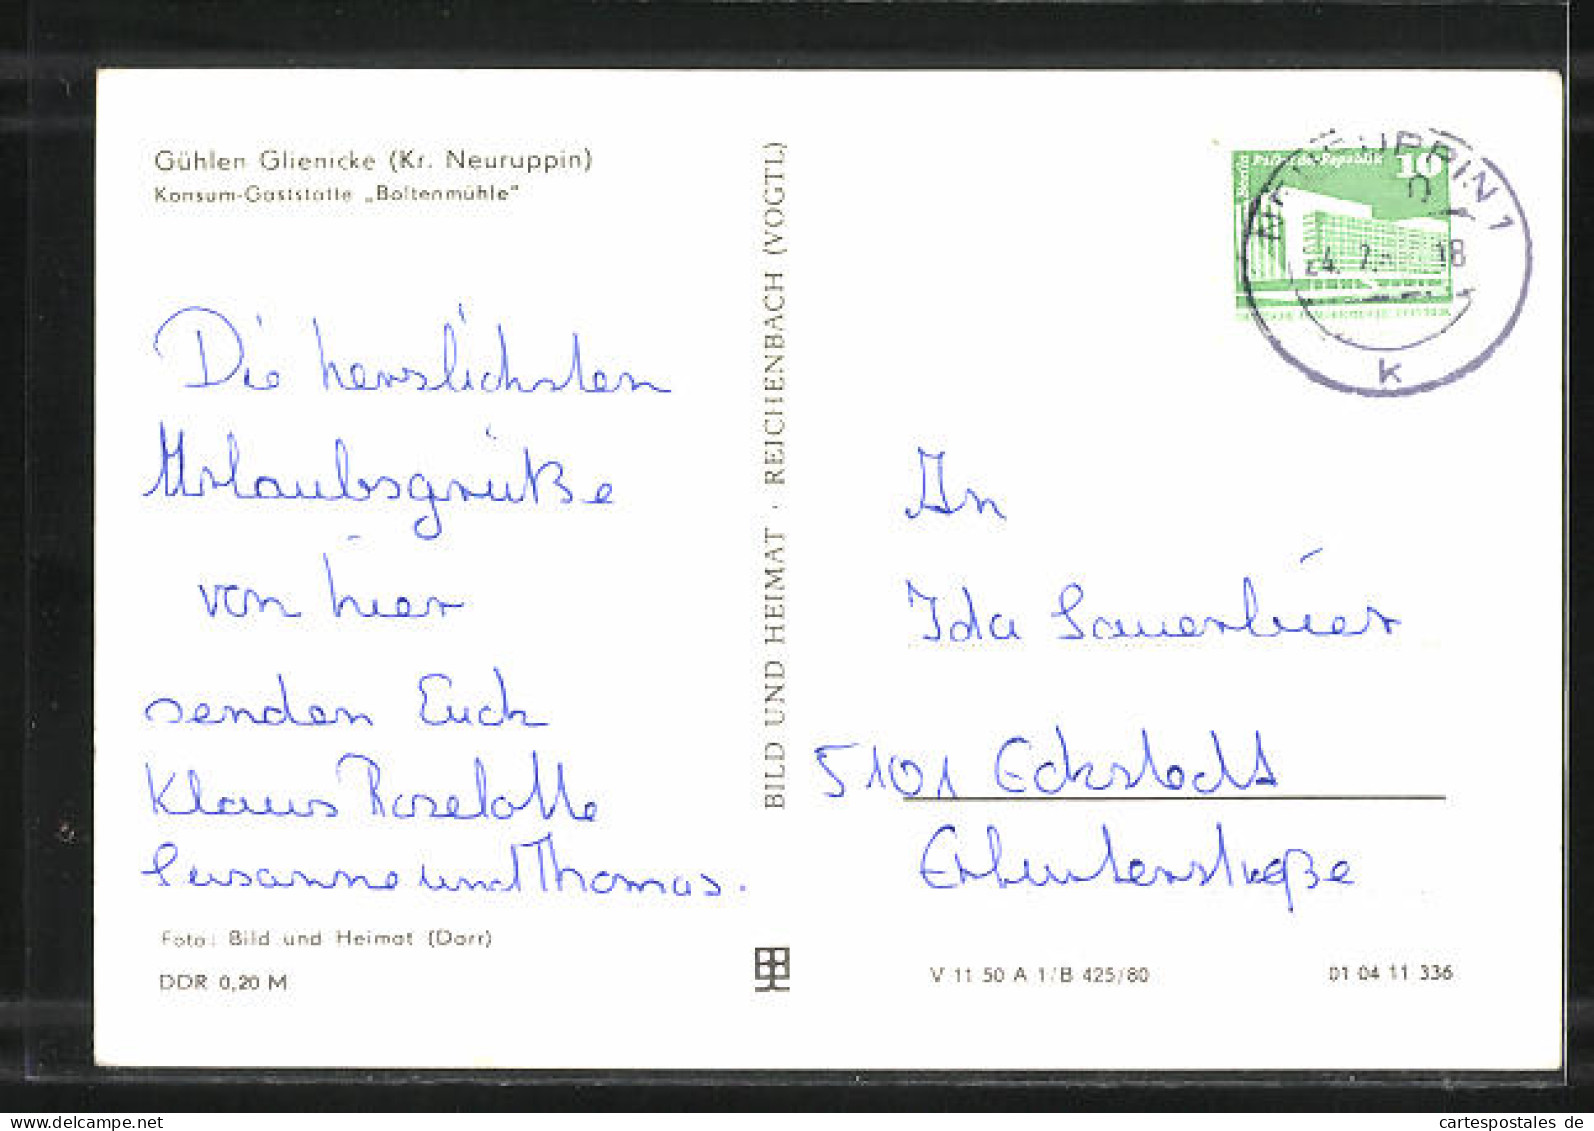 Gühlen Glienicke (Kr. Neuruppin)
Konsum-Gaststätte „Boltenmühle“
Die herzlichsten
Urlaubsgrüße
von hier
senden Euch
Klaus Roselotte
Susanne und Thomas.
Foto: Bild und Heimat (Darr)
DDR 0,20 M
BILD UND HEIMAT · REICHENBACH (VOGTL)
Berlin Palast der Republik 10
NEURUPPIN 1
24. 7. 18
k
An
Ida Sauerbier
5101 Eckstedt
Erfurterstraße
V 11 50 A 1/B 425/80
01 04 11 336
cartespostales de